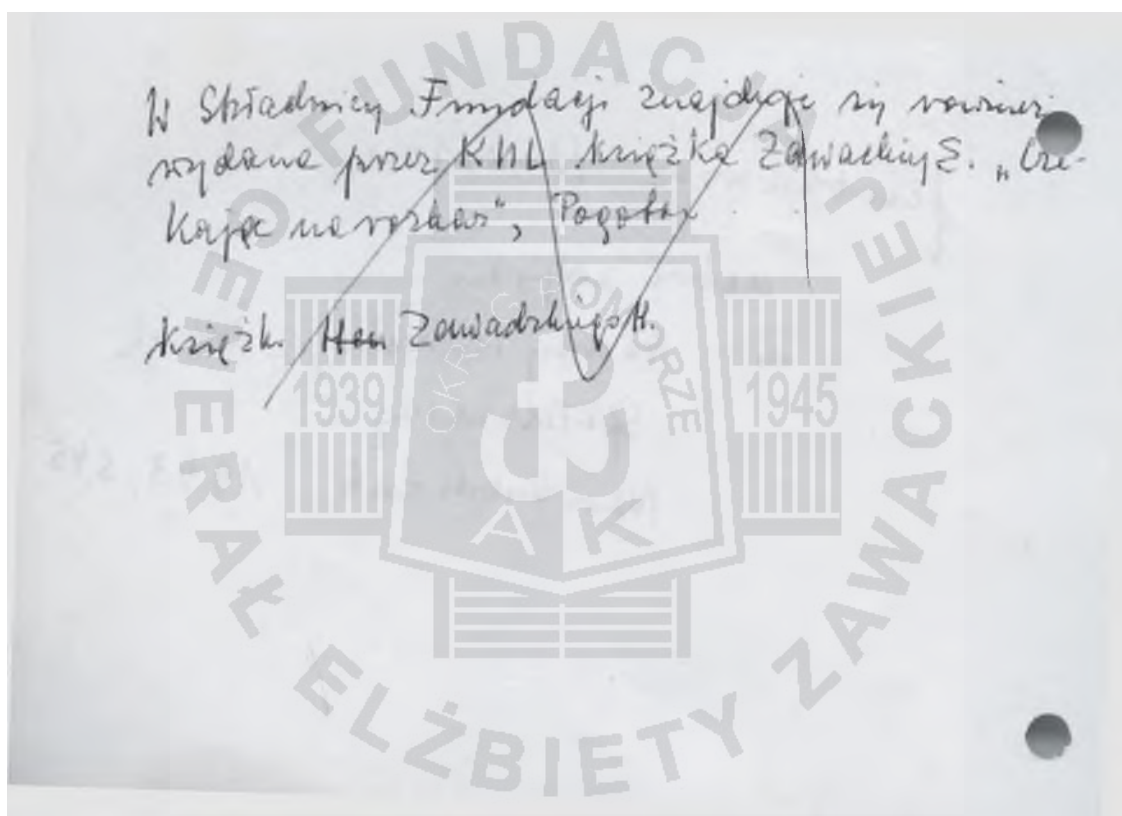 W Składnicy Fundacji znajduje się również
wydana przez KUL książka Zawackiej E. „Cze-
kając na rozkaz”, Pogotow
książk. Zawadzkiego H.
FUNDACJA
GENERAŁ ELŻBIETY ZAWACKIEJ
OKRĘG POMORZE
1939
1945
AK